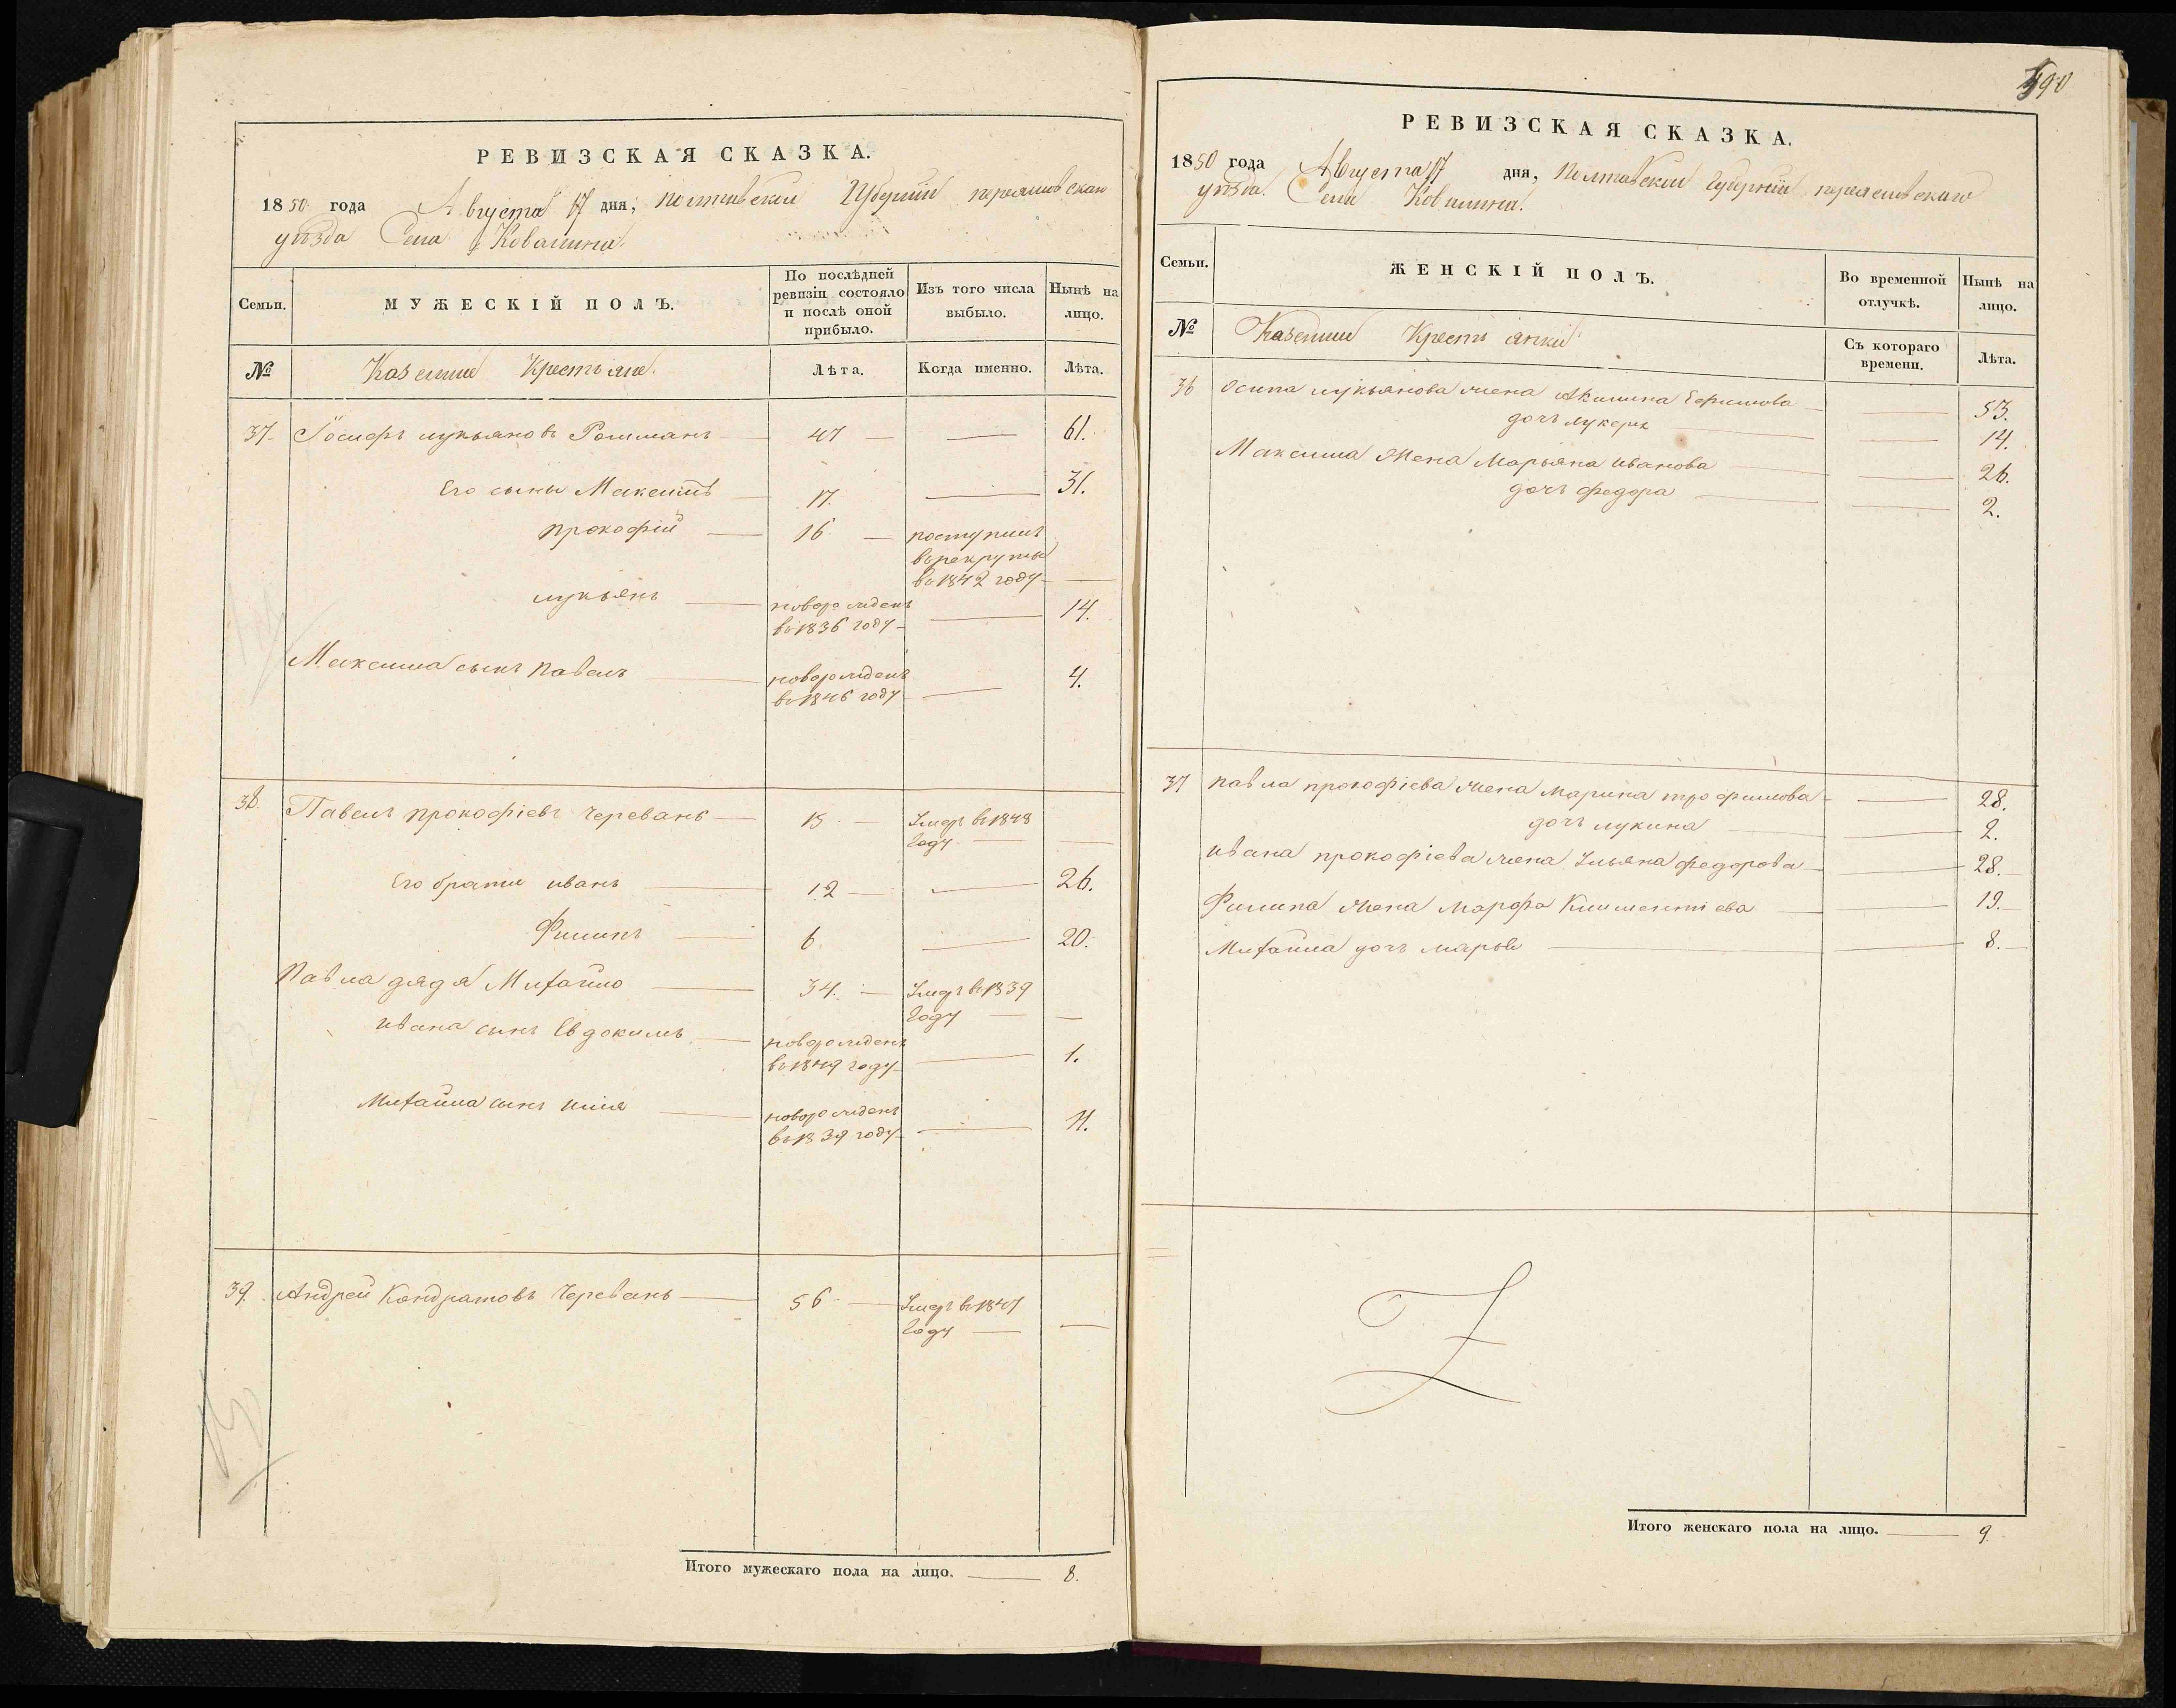 РЕВИЗСКАЯ СКАЗКА.
1850 года Августа 17 дня, Полтавской Губерніи переяславскаго
уѣзда Села Ковалина.
Семьи.
МУЖЕСКІЙ ПОЛЪ.
По послѣдней
ревизіи состояло
и послѣ оной
прибыло.
Изъ того числа
выбыло.
Нынѣ на
лицо.
№
Казенные Крестьяне.
Лѣта.
Когда именно.
Лѣта.
37. Іосифъ лукьяновъ Рошманъ 47 61.
Его сыны Максимъ 17. 31.
прокофій 16 поступилъ
въ рекруты
въ 1842 году
лукьянъ новорожденъ 14.
въ 1836 году
Максима сынъ павелъ новорожденъ 4.
въ 1846 году
38. Павелъ прокофіевъ Черевань 15 Умеръ въ 1848
году
Его братья иванъ 12 26.
Филипъ 6 20.
Павла дядя Михайло 34. Умеръ въ 1839
году
ивана сынъ Евдокимъ новорожденъ 1.
въ 1849 году
Михайла сынъ илія новорожденъ 11.
въ 1839 году
39. Андрей Кондратовъ Черевань 56 Умеръ въ 1847
году
Итого мужескаго пола на лицо. 8.
590
РЕВИЗСКАЯ СКАЗКА.
1850 года Августа 17 дня, Полтавской Губерніи переяславскаго
уѣзда. Села Ковалина.
Семьи.
ЖЕНСКІЙ ПОЛЪ.
Во временной
отлучкѣ.
Нынѣ на
лицо.
№
Казенные Крестьянки
Съ котораго
времени.
Лѣта.
36 Осипа лукьянова жена Акилина Ефимова 53.
дочь лукерья 14.
Максима жена Марьяна иванова 26.
дочь федора 2.
37 павла прокофіева жена марина трофимова 28.
дочь лукина 2.
ивана прокофіева жена Ульяна федорова 28.
Филипа жена марфа Климентіева 19.
Михайла дочь марья 8.
Итого женскаго пола на лицо. 9